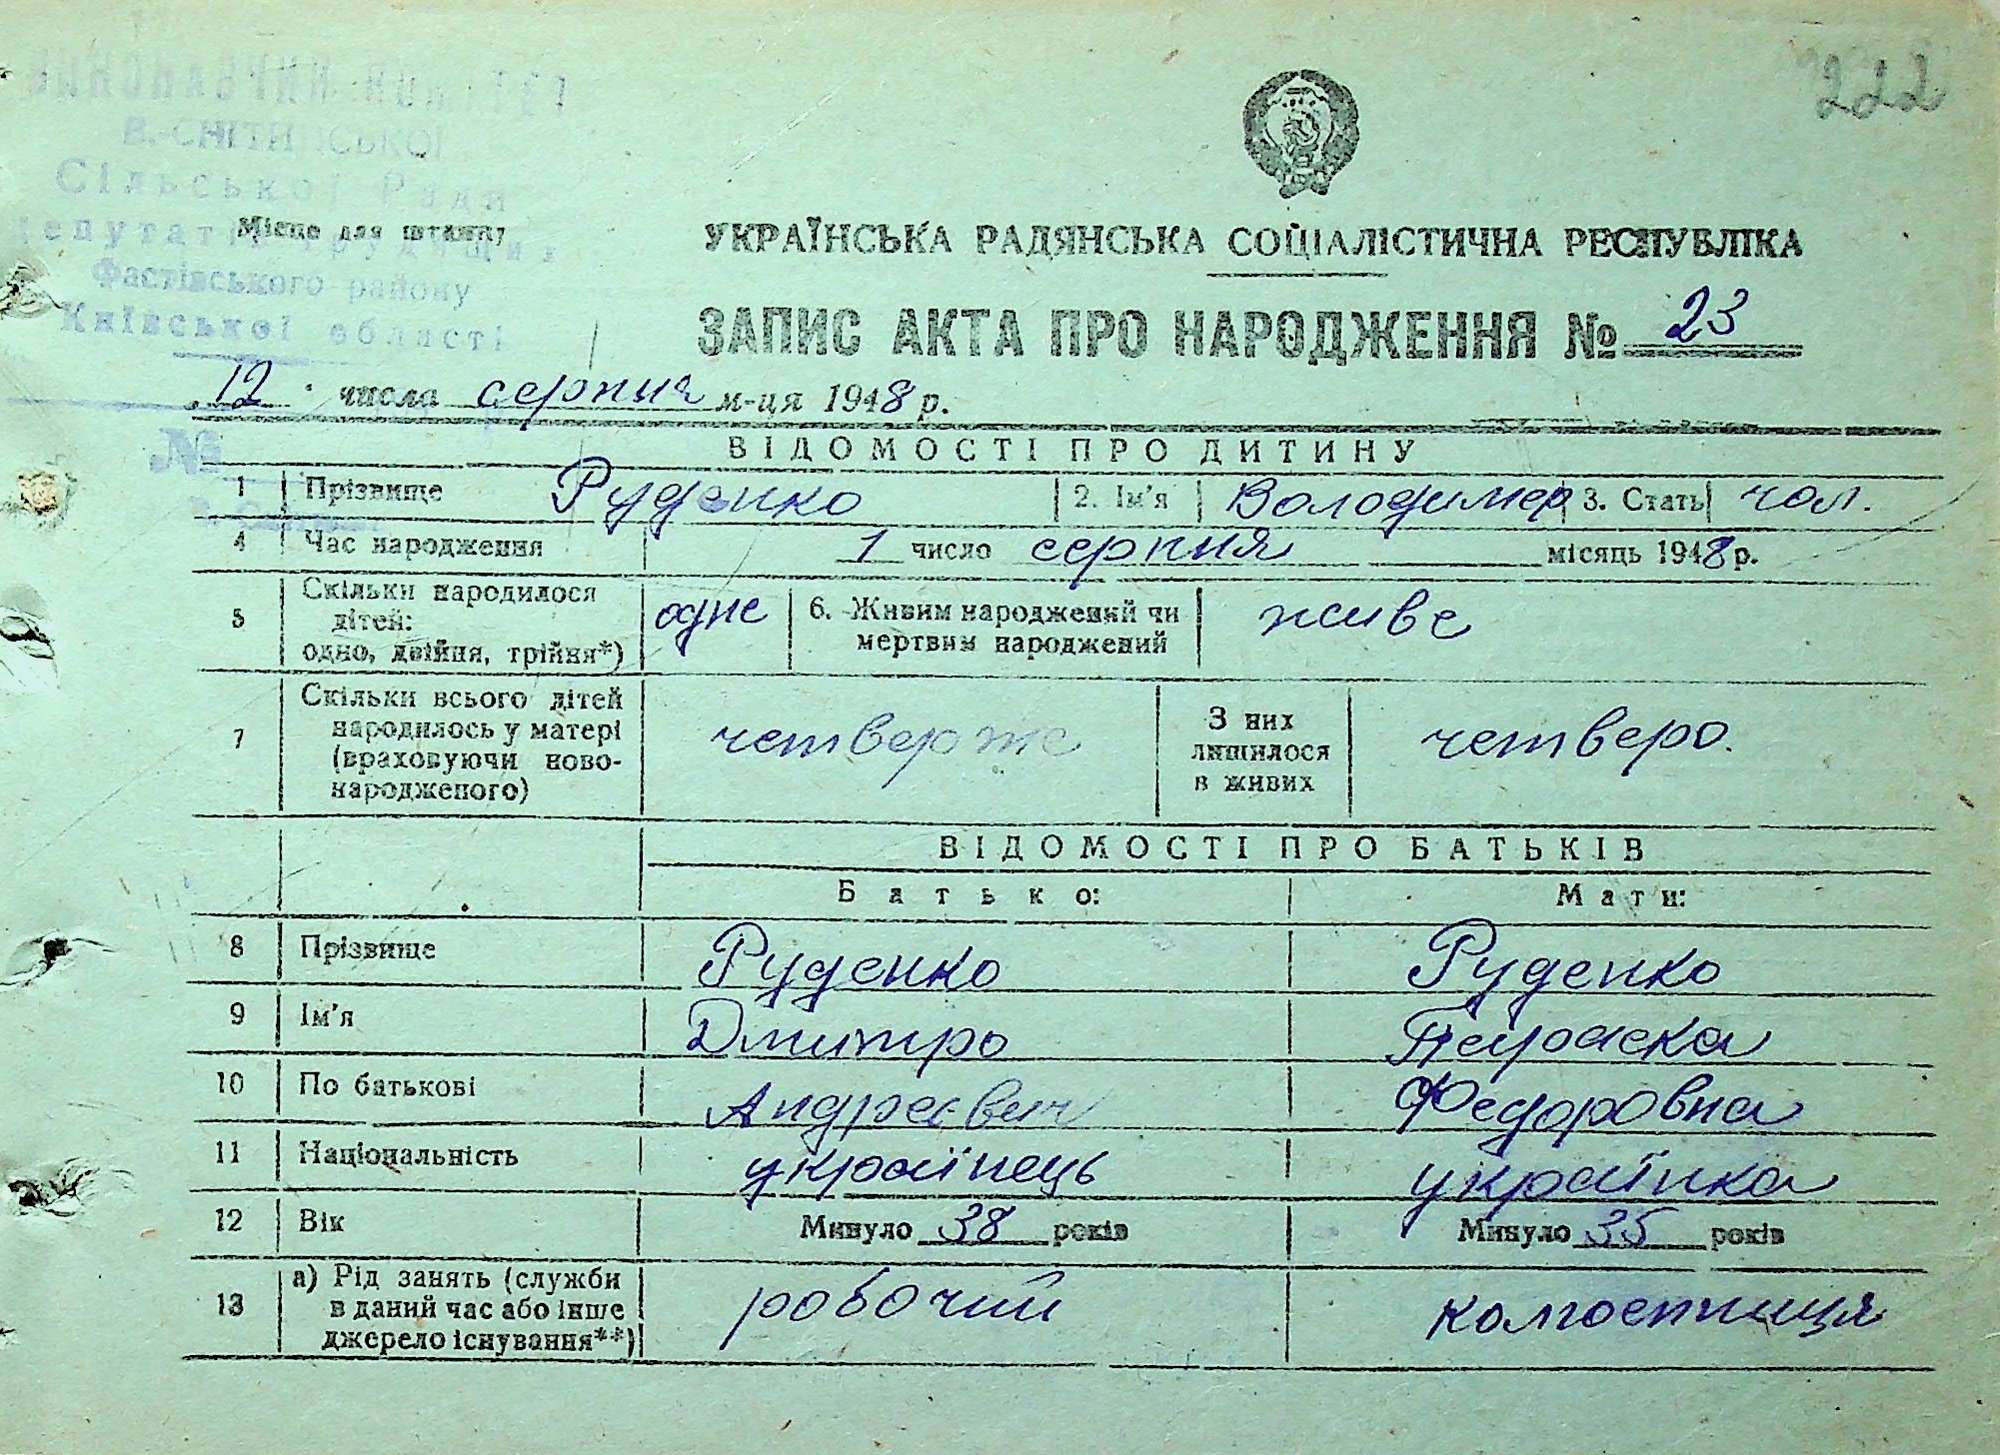 222
ВИКОНАВЧИЙ КОМІТЕТ
В.-СНІТИНСЬКОЇ
Сільської Ради
депутатів трудящих
Місце для штампу
Фастівського району
Київської області
№
УКРАЇНСЬКА РАДЯНСЬКА СОЦІАЛІСТИЧНА РЕСПУБЛІКА
ЗАПИС АКТА ПРО НАРОДЖЕННЯ № 23
12 числа серпня м-ця 1948 р.
ВІДОМОСТІ ПРО ДИТИНУ
1 Прізвище Руденко 2. Ім'я Володимер 3. Стать чол.
4 Час народження 1 число серпня місяць 1948 р.
5 Скільки народилося дітей: одно, двійня, трійня*) одне 6. Живим народжений чи мертвим народжений живе
7 Скільки всього дітей народилось у матері (враховуючи ново-народженого) четверте З них лишилося в живих четверо.
ВІДОМОСТІ ПРО БАТЬКІВ
Батько: Мати:
8 Прізвище Руденко Руденко
9 Ім'я Дмитро Параска
10 По батькові Андреєвич Федоровна
11 Національність українець українка
12 Вік Минуло 38 років Минуло 35 років
13 а) Рід занять (служби в даний час або інше джерело існування**) робочий колгоспниця